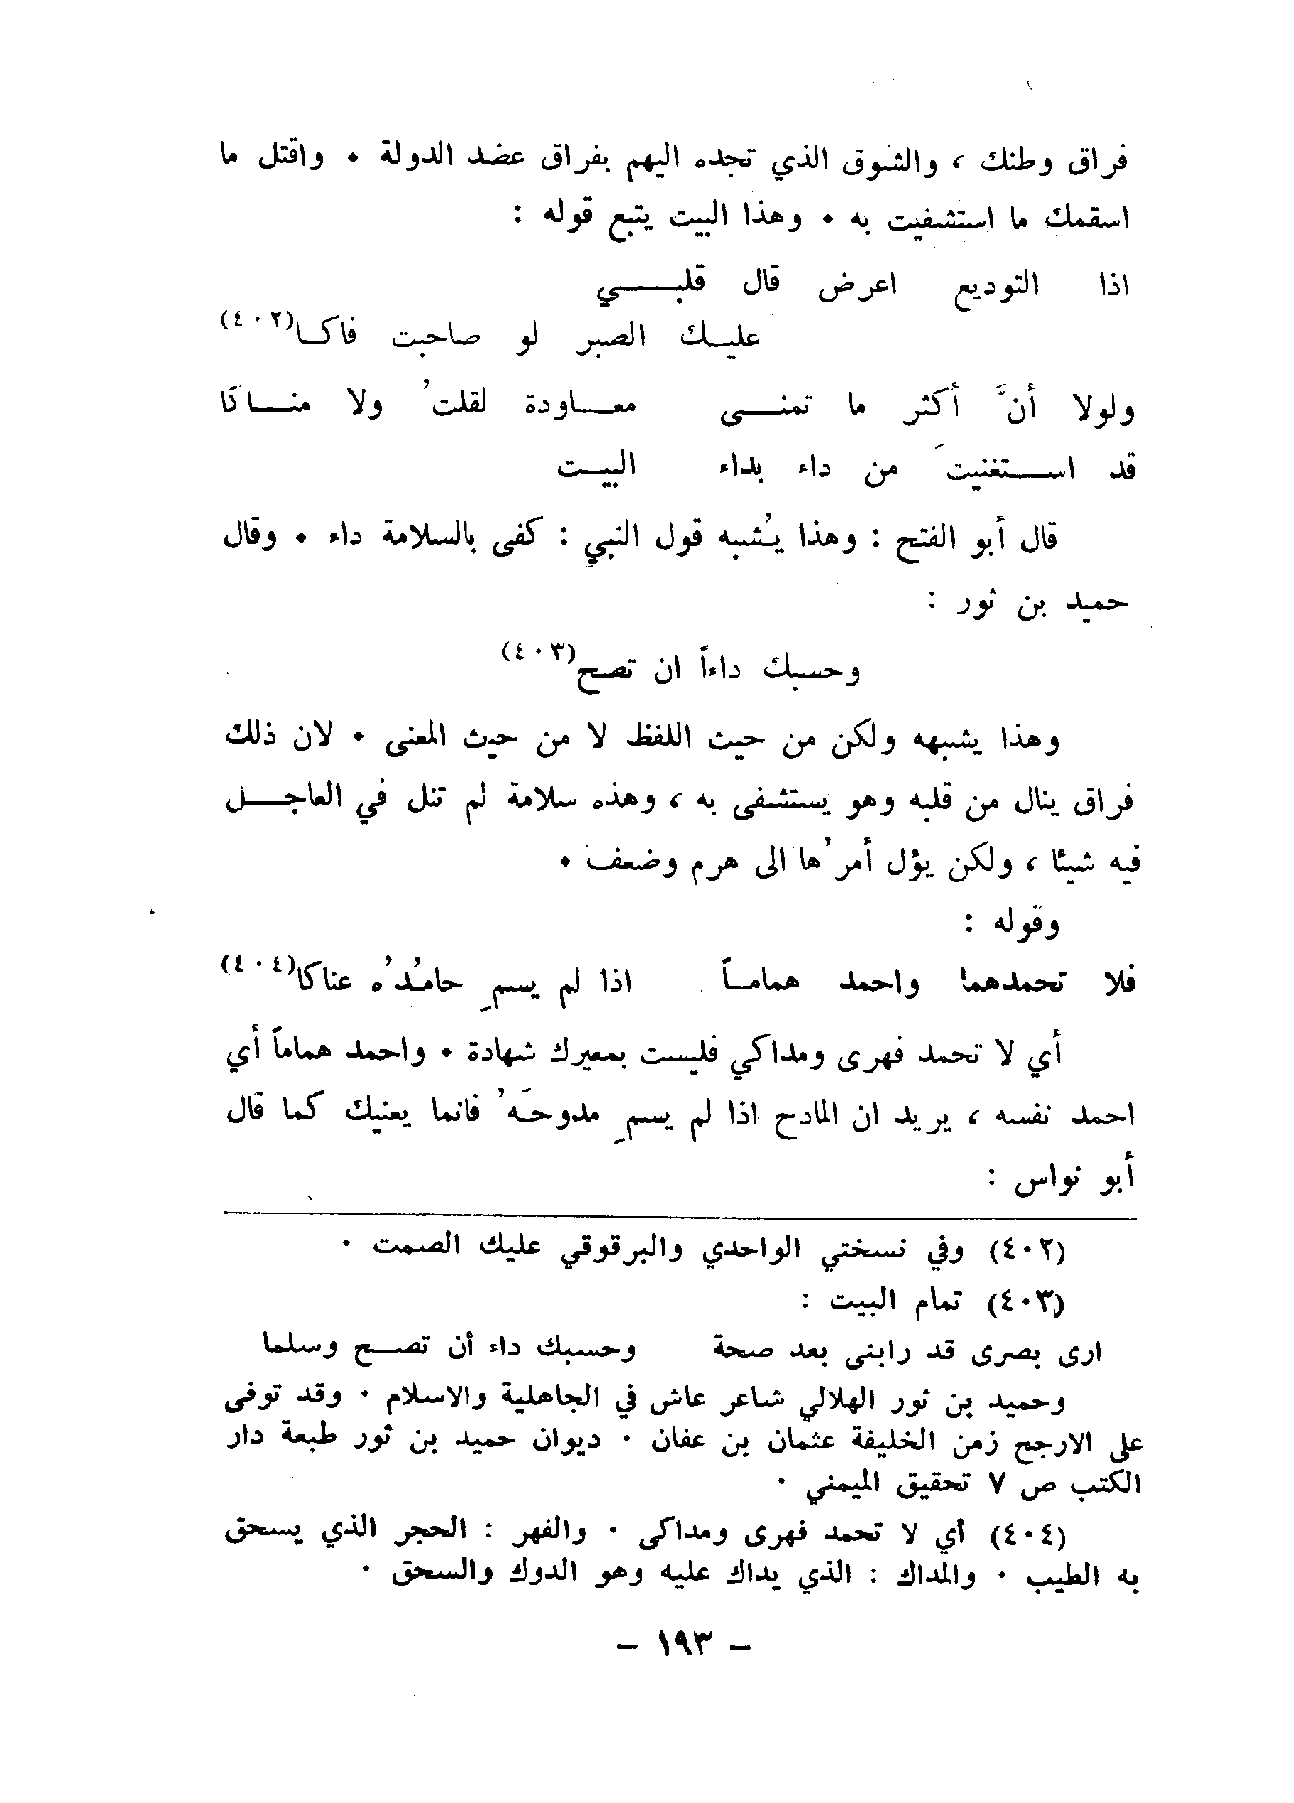 فراق وطنك ، والشوق الذي تجده اليهم بفراق عضد الدولة ٠ واقتل ما
اسقمك ما استشفيت به ٠ وهذا البيت يتبع قوله :
اذا التوديع اعرض قال قلبـــي
عليـك الصبر لو صاحبت فاكـا(٤٠٢)
ولولا أنَّ أكثر ما تمنـــى معـاودة لقلتُ ولا منـــاكا
قد اســـتغنيتَ من داء بداء البيـت
قال أبو الفتح : وهذا يُشبه قول النبي : كفى بالسلامة داء ٠ وقال
حميد بن ثور :
وحسبك داءاً ان تصح(٤٠٣)
وهذا يشبهه ولكن من حيث اللفظ لا من حيث المعنى ٠ لان ذلك
فراق ينال من قلبه وهو يستشفى به ، وهذه سلامة لم تنل في العاجـــل
فيه شيئا ، ولكن يؤل أمرُها الى هرم وضعف ٠
وقوله :
فلا تحمدهما واحمد همامـاً اذا لم يسمِ حامدُه عناكا(٤٠٤)
أي لا تحمد فهرى ومداكي فليست بمعيرك شهادة ٠ واحمد هماماً أي
احمد نفسه ، يريد ان المادح اذا لم يسمِ مدوحَهُ فانما يعنيك كما قال
أبو نواس :
(٤٠٢) وفي نسختي الواحدي والبرقوقي عليك الصمت ٠
(٤٠٣) تمام البيت :
ارى بصرى قد رابنى بعد صحة وحسبك داء أن تصـــح وسلما
وحميد بن ثور الهلالي شاعر عاش في الجاهلية والاسلام ٠ وقد توفى
على الارجح زمن الخليفة عثمان بن عفان ٠ ديوان حميد بن ثور طبعة دار
الكتب ص ٧ تحقيق الميمني ٠
(٤٠٤) أي لا تحمد فهرى ومداكى ٠ والفهر : الحجر الذي يسحق
به الطيب ٠ والمداك : الذي يداك عليه وهو الدوك والسحق ٠
– ١٩٣ –